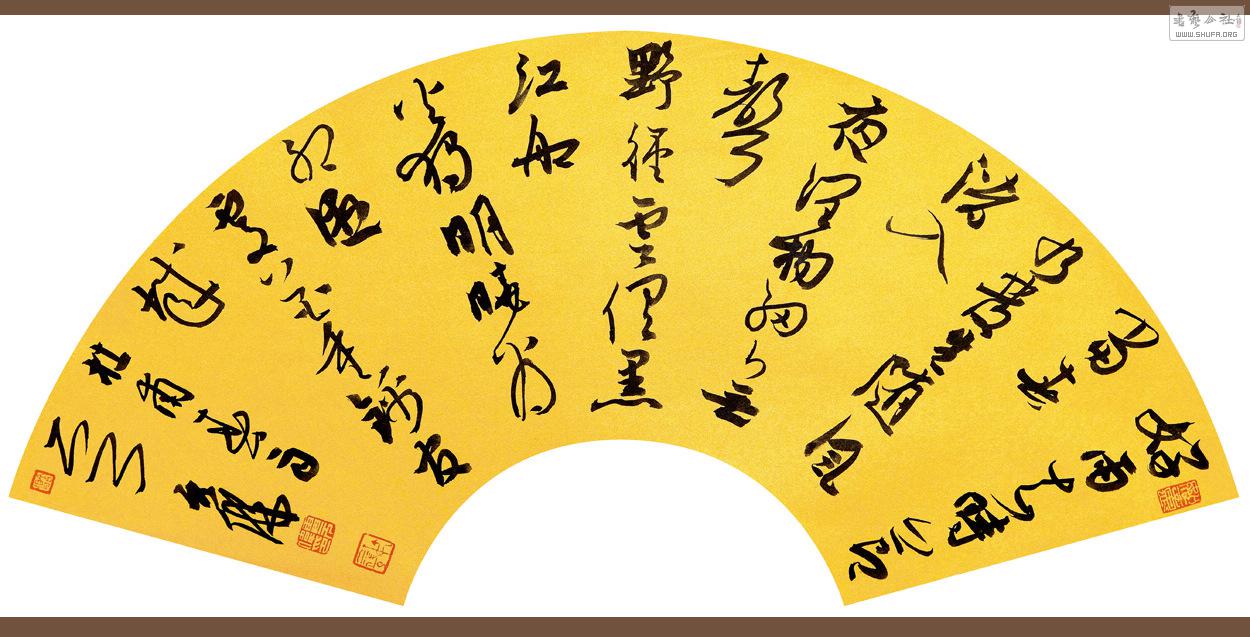 好雨知時節
當春
乃發生隨風
潛入
夜潤物細無
聲
野徑雲俱黑
江船
火獨明曉看
紅濕
處花重錦官
城
杜甫
WWW.SHUFA.ORG